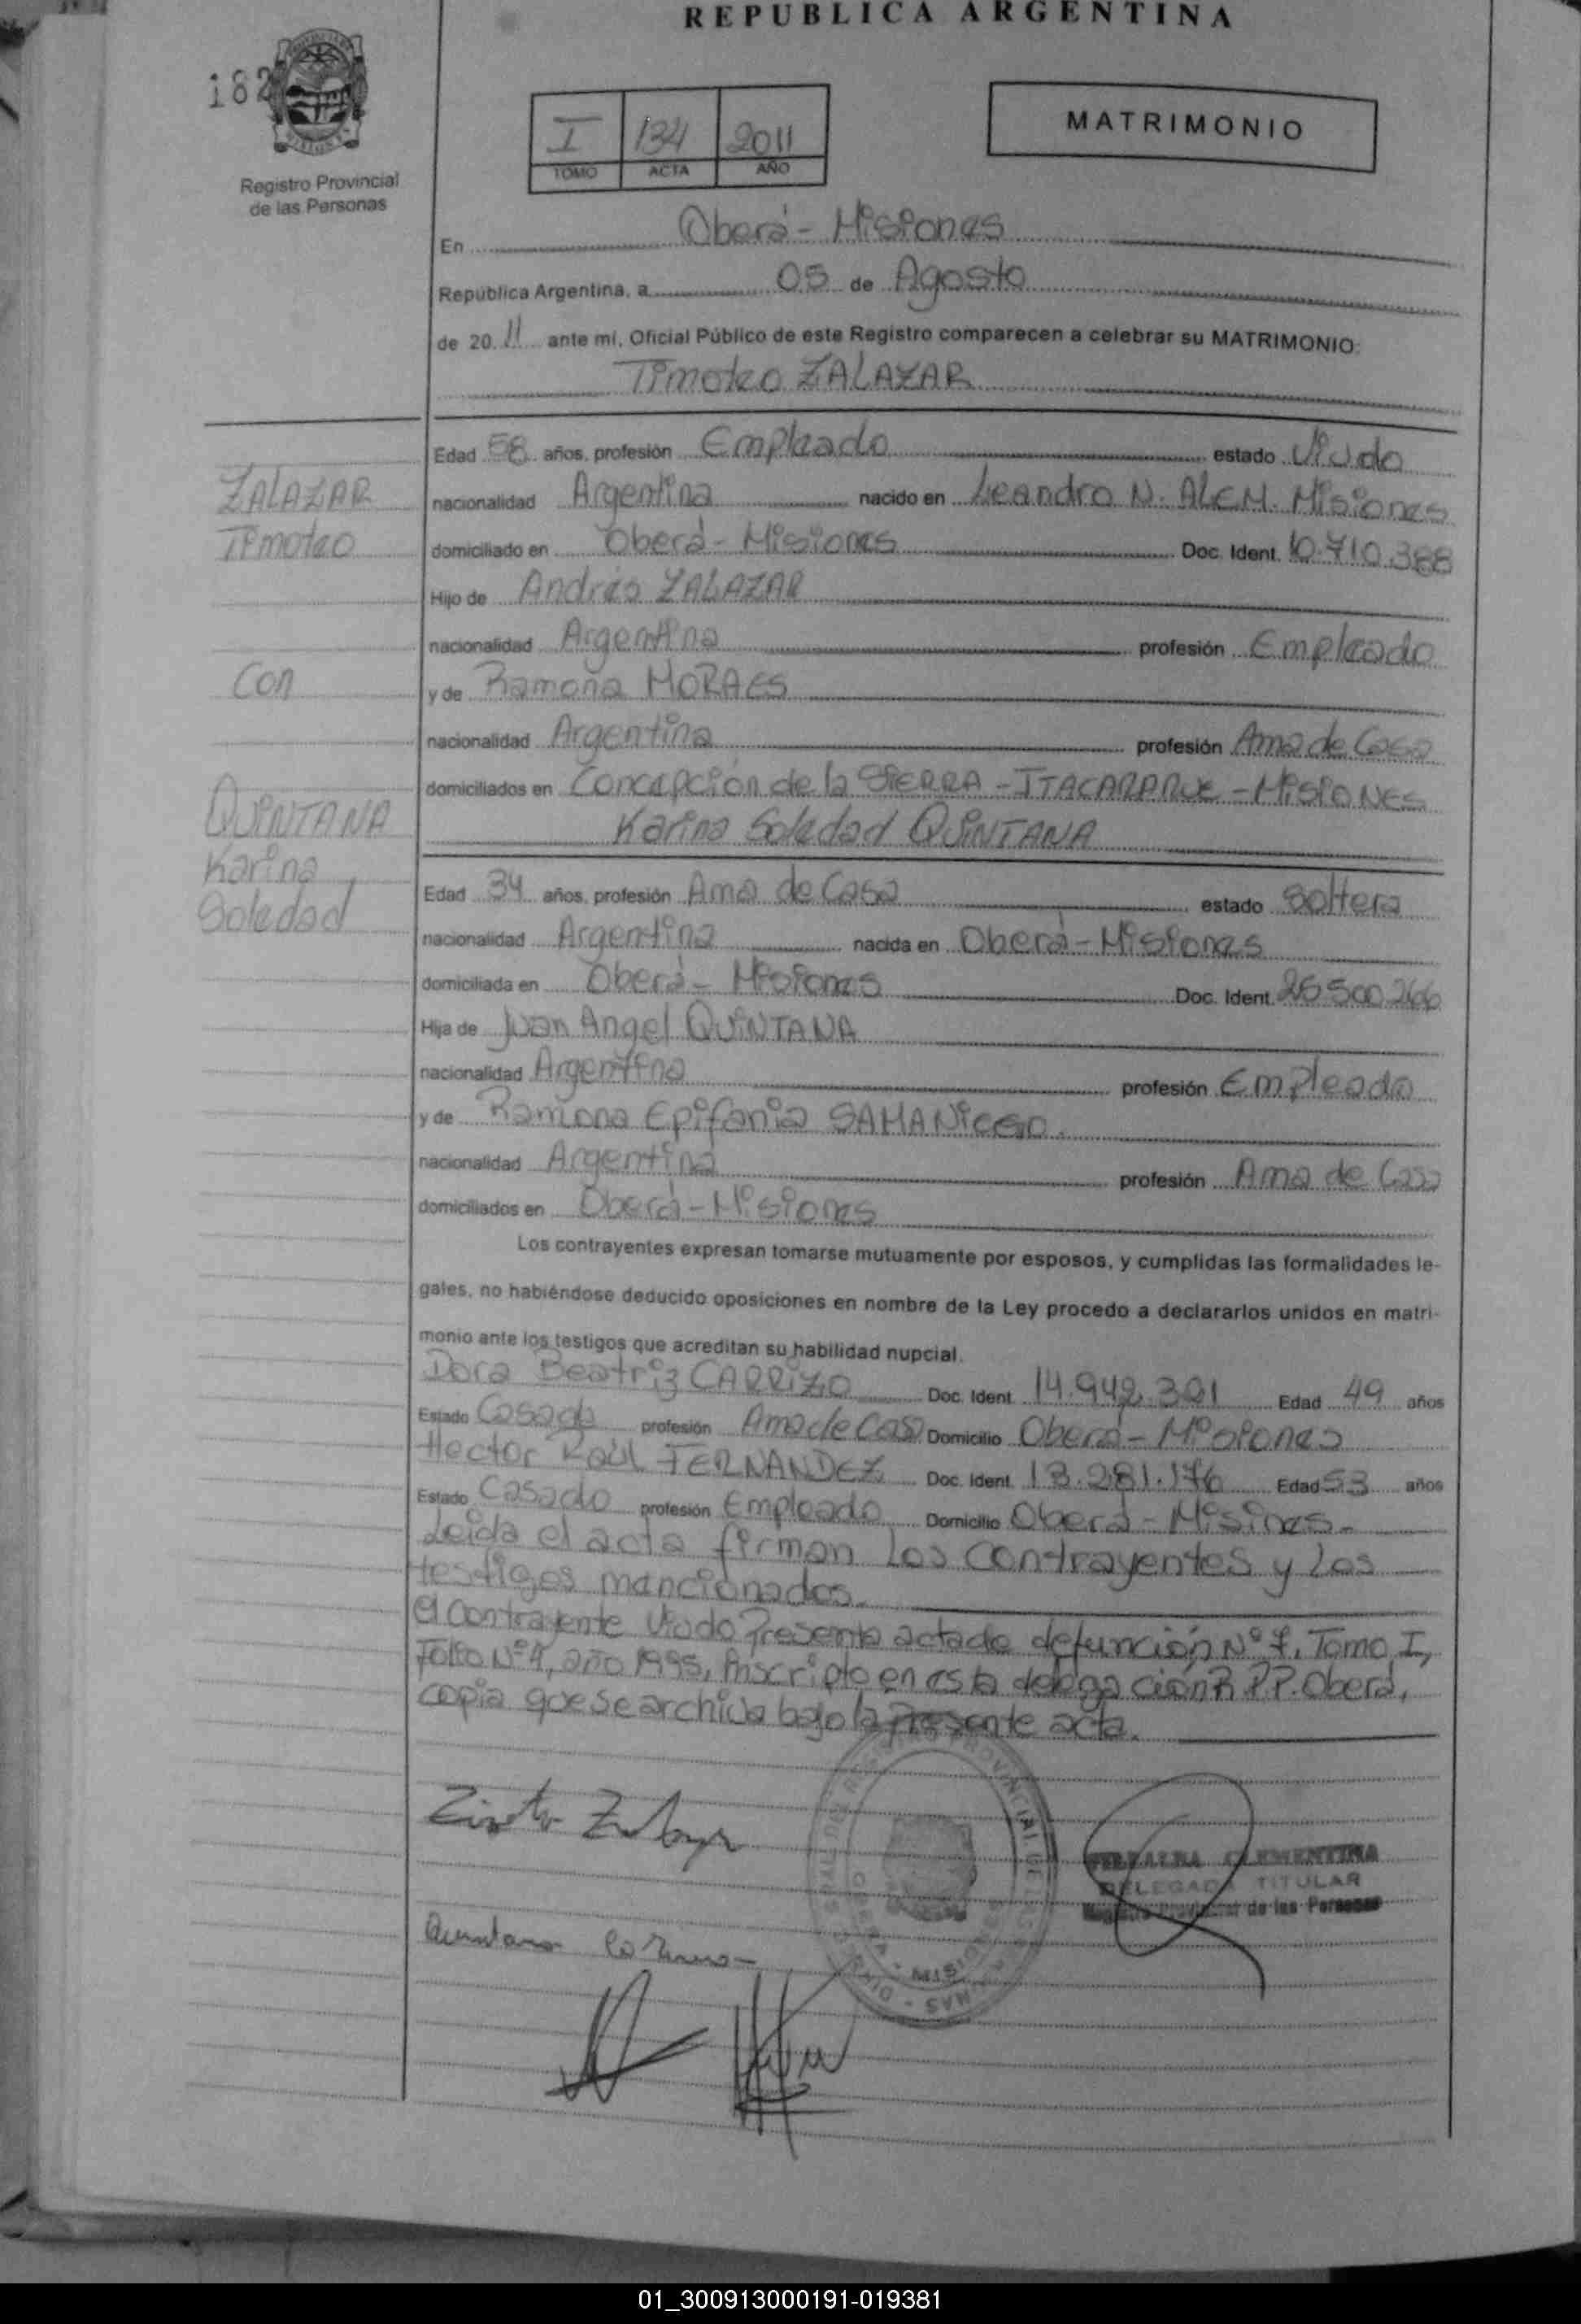 REPUBLICA ARGENTINA
182
Registro Provincial
de las Personas
I 134 2011
TOMO ACTA AÑO
MATRIMONIO
En Oberá - Misiones
República Argentina, a 05 de Agosto
de 2011 ante mí, Oficial Público de este Registro comparecen a celebrar su MATRIMONIO:
Timoteo ZALAZAR
ZALAZAR
Timoteo
Con
QUINTANA
Karina
Soledad
Edad 58 años, profesión Empleado estado Viudo
nacionalidad Argentina nacido en Leandro N. ALEM. Misiones
domiciliado en Oberá - Misiones Doc. Ident. 10.710.388
Hijo de Andrés ZALAZAR
nacionalidad Argentina profesión Empleado
y de Ramona MORAES
nacionalidad Argentina profesión Ama de Casa
domiciliados en Concepción de la SIERRA - ITACARARUE - MISIONES
Karina Soledad QUINTANA
Edad 34 años, profesión Ama de Casa estado Soltera
nacionalidad Argentina nacida en Oberá - Misiones
domiciliada en Oberá - Misiones Doc. Ident. 26.500.266
Hija de Juan Angel QUINTANA
nacionalidad Argentina profesión Empleado
y de Ramona Epifania SAMANIEGO.
nacionalidad Argentina profesión Ama de Casa
domiciliados en Oberá - Misiones
Los contrayentes expresan tomarse mutuamente por esposos, y cumplidas las formalidades le-
gales, no habiéndose deducido oposiciones en nombre de la Ley procedo a declararlos unidos en matri-
monio ante los testigos que acreditan su habilidad nupcial.
Dora Beatriz CARRIZO Doc. Ident. 14.942.301 Edad 49 años
Estado Casada profesión Ama de Casa Domicilio Oberá - Misiones
Hector Raúl FERNANDEZ Doc. Ident. 13.281.176 Edad 53 años
Estado Casado profesión Empleado Domicilio Oberá - Misines.
Leida el acta firman los contrayentes y los
testigos mencionados.
El Contrayente Viudo Presenta acta de defunción Nº 7, Tomo I,
Folio Nº 4, año 1995, Inscripto en esta delegación R.P.P. Oberá,
copia que se archiva bajo la Presente acta.
CLEMENTINA
DELEGADA TITULAR
Registro Provincial de las Personas
Quintana Karina
01_300913000191-019381